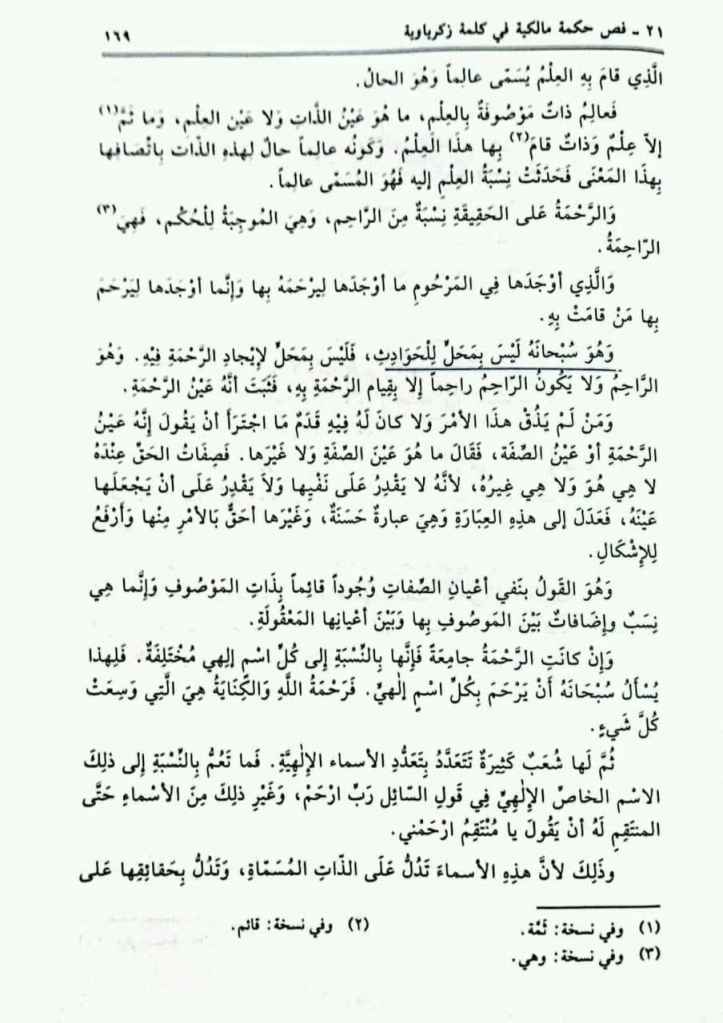 ٢١ - فص حكمة مالكية في كلمة زكرياوية ١٦٩
الَّذِي قامَ بِهِ العِلْمُ يُسَمّى عالِماً وَهُوَ الحالُ.
فَعالِمُ ذاتٌ مَوْصُوفَةٌ بِالعِلْمِ، ما هُوَ عَيْنُ الذَّاتِ وَلا عَيْن العِلْمِ، وَما ثَمَّ(١)
إلاّ عِلْمٌ وَذاتٌ قامَ(٢) بِها هذَا العِلْمُ. وَكَونُه عالِماً حالٌ لِهذِهِ الذّات بِاتِّصافِها
بِهذَا المَعْنَى فَحَدَثَتْ نِسْبَةُ العِلْمِ إليه فَهُوَ المُسَمّى عالِماً.
وَالرَّحْمَةُ عَلى الحَقِيقَةِ نِسْبَةٌ مِنَ الرَّاحِمِ، وَهِيَ المُوجِبَةُ لِلْحُكْمِ، فَهِيَ(٣)
الرّاحِمَةُ.
وَالَّذِي أوْجَدَها فِي المَرْحُومِ ما أوْجَدَها لِيرْحَمَهُ بِها وَإنَّما أوْجَدَها لِيَرْحَمَ
بِها مَنْ قامَتْ بِهِ.
وَهُوَ سُبْحانَهُ لَيْسَ بِمَحَلٍّ لِلْحَوَادِثِ، فَلَيْسَ بِمَحَلٍّ لإيْجادِ الرَّحْمَةِ فِيْهِ. وَهُوَ
الرَّاحِمُ وَلا يَكُونُ الرّاحِمُ راحِماً إلا بِقِيامِ الرَّحْمَةِ بِهِ، فَثَبَتَ أنَّهُ عَيْنُ الرَّحْمَةِ.
وَمَنْ لَمْ يَذُقْ هذَا الأمْرَ وَلا كانَ لَهُ فِيْهِ قَدَمٌ مَا اجْتَرَأَ أنْ يَقُولَ إنَّهُ عَيْنُ
الرَّحْمَةِ أوْ عَيْنُ الصِّفَةِ، فَقَالَ ما هُوَ عَيْنَ الصِّفَةِ وَلا غَيْرَها. فَصِفَاتُ الحَقِّ عِنْدَهُ
لا هِي هُوَ وَلا هِي غيرُهُ، لأنَّهُ لا يَقْدِرُ عَلى نَفْيِها وَلاَ يَقْدِرُ عَلى أنْ يَجْعَلَها
عَيْنَهُ، فَعَدَلَ إلى هذِهِ العِبَارَةِ وَهِيَ عبارةٌ حَسَنَةٌ، وَغَيْرَها أحَقُّ بَالأمْرِ مِنْها وَأرْفَعُ
لِلإشْكالِ.
وَهُوَ القَولُ بنَفي أعْيانِ الصِّفاتِ وُجُوداً قائِماً بِذَاتِ المَوْصُوفِ وَإنَّما هِي
نِسَبٌ وإضَافاتٌ بَيْنَ المَوصُوفِ بِها وَبَيْنَ أعْيانِها المَعْقُولَةِ.
وَإنْ كانَتِ الرَّحْمَةُ جامِعَةً فَإنَّها بِالنِّسْبَةِ إلى كُلِّ اسْمٍ إلهِي مُخْتَلِفَةٌ. فَلِهذا
يُسْألُ سُبْحَانَهُ أنْ يَرْحَمَ بِكُلِّ اسْمٍ إلٰهيِّ. فَرَحْمَةُ اللَّهِ وَالكِنَايَةُ هِيَ الَّتِي وَسِعَتْ
كُلَّ شَيءٍ.
ثُمَّ لَها شُعَبٌ كَثِيرَةٌ تَتَعَدَّدُ بِتَعَدُّدِ الأسماء الإلٰهِيَّةِ. فَما تَعُمُّ بِالنِّسْبَةِ إلى ذلِكَ
الاسْم الخاصِّ الإلٰهِيِّ فِي قَولِ السّائِلِ رَبِّ ارْحَمْ، وَغَيْرِ ذلِكَ مِنَ الأسْماءِ حَتَّى
المنتَقِمِ لَهُ أنْ يَقُولَ يا مُنْتَقِمُ ارْحَمْني.
وذَلِكَ لأنَّ هذِهِ الأسماءَ تَدُلُّ عَلَى الذّاتِ المُسَمّاةِ، وَتَدُلُّ بِحَقائِقِها عَلى
(١) وفي نسخة: ثَمَّة. (٢) وفي نسخة: قائم.
(٣) وفي نسخة: وهي.